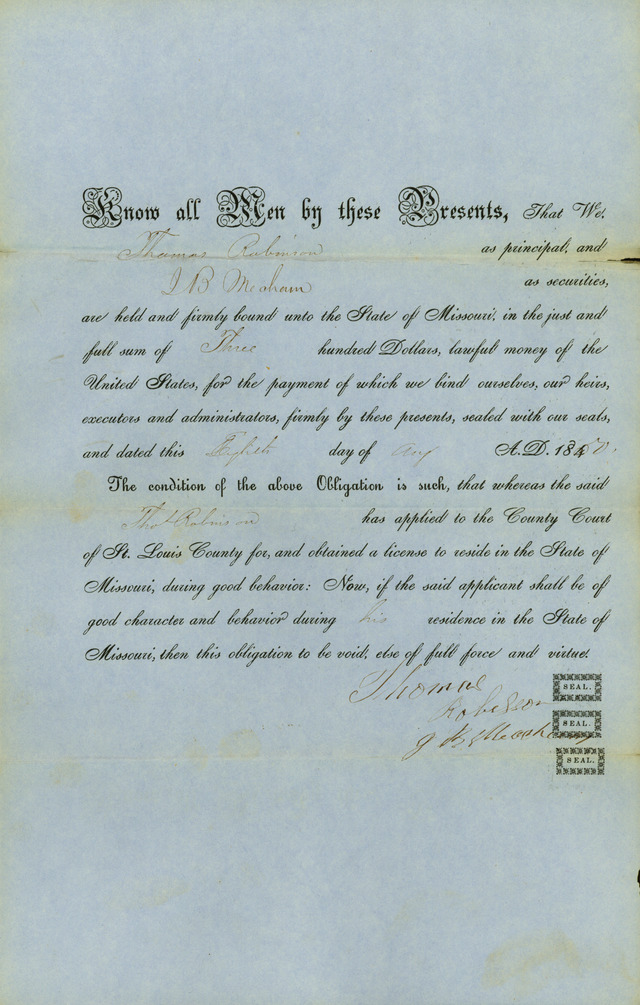 Know all Men by these Presents, That We.
Thomas Robinson as principal, and
J B Meaham as securities,
are held and firmly bound unto the State of Missouri, in the just and
full sum of Three hundred Dollars, lawful money of the
United States, for the payment of which we bind ourselves, our heirs,
executors and administrators, firmly by these presents, sealed with our seals,
and dated this Eighth day of Aug A.D. 1850.
The condition of the above Obligation is such, that whereas the said
Thos Robinson has applied to the County Court
of St. Louis County for, and obtained a license to reside in the State of
Missouri, during good behavior: Now, if the said applicant shall be of
good character and behavior during his residence in the State of
Missouri, then this obligation to be void, else of full force and virtue.
Thomas SEAL.
Robeson SEAL.
J B Meachum SEAL.